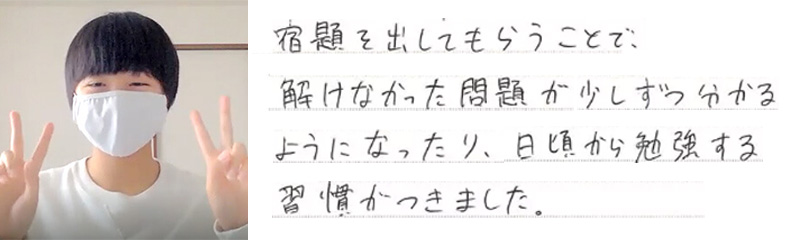 宿題を出してもらうことで、
解けなかった問題が少しずつ分かる
ようになったり、日頃から勉強する
習慣がつきました。